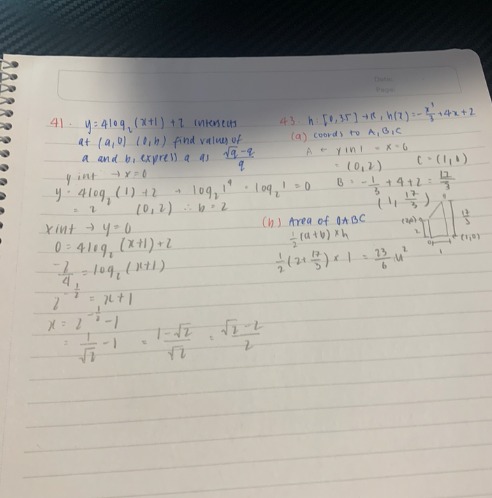 41. y=4log₂(x+1)+2 intersects
at (a,0) (0,b) find values of
a and b, express a as (√q-q)/q
y int → x=0
y=4log₂(1)+2 → log₂1⁴ = log₂1 = 0
= 2 (0,2) ∴ b=2
x int → y=0
0=4log₂(x+1)+2
-2/4 = log₂(x+1)
2^(-1/2) = x+1
x = 2^(-1/2) -1
= 1/√2 - 1 = (1-√2)/√2 = (√2-2)/2
43 h:[0,35]→R, h(x)=-x³/3+4x+2
(a) coords to A,B,C
A → y int = x=0
= (0,2) C=(1,0)
B = -1/3+4+2 = 17/3
(1, 17/3)
(b) Area of OABC
1/2(a+b)×h
1/2(2+17/3)×1 = 23/6 u²
2
17/3
(1,0)
1
Date
Page